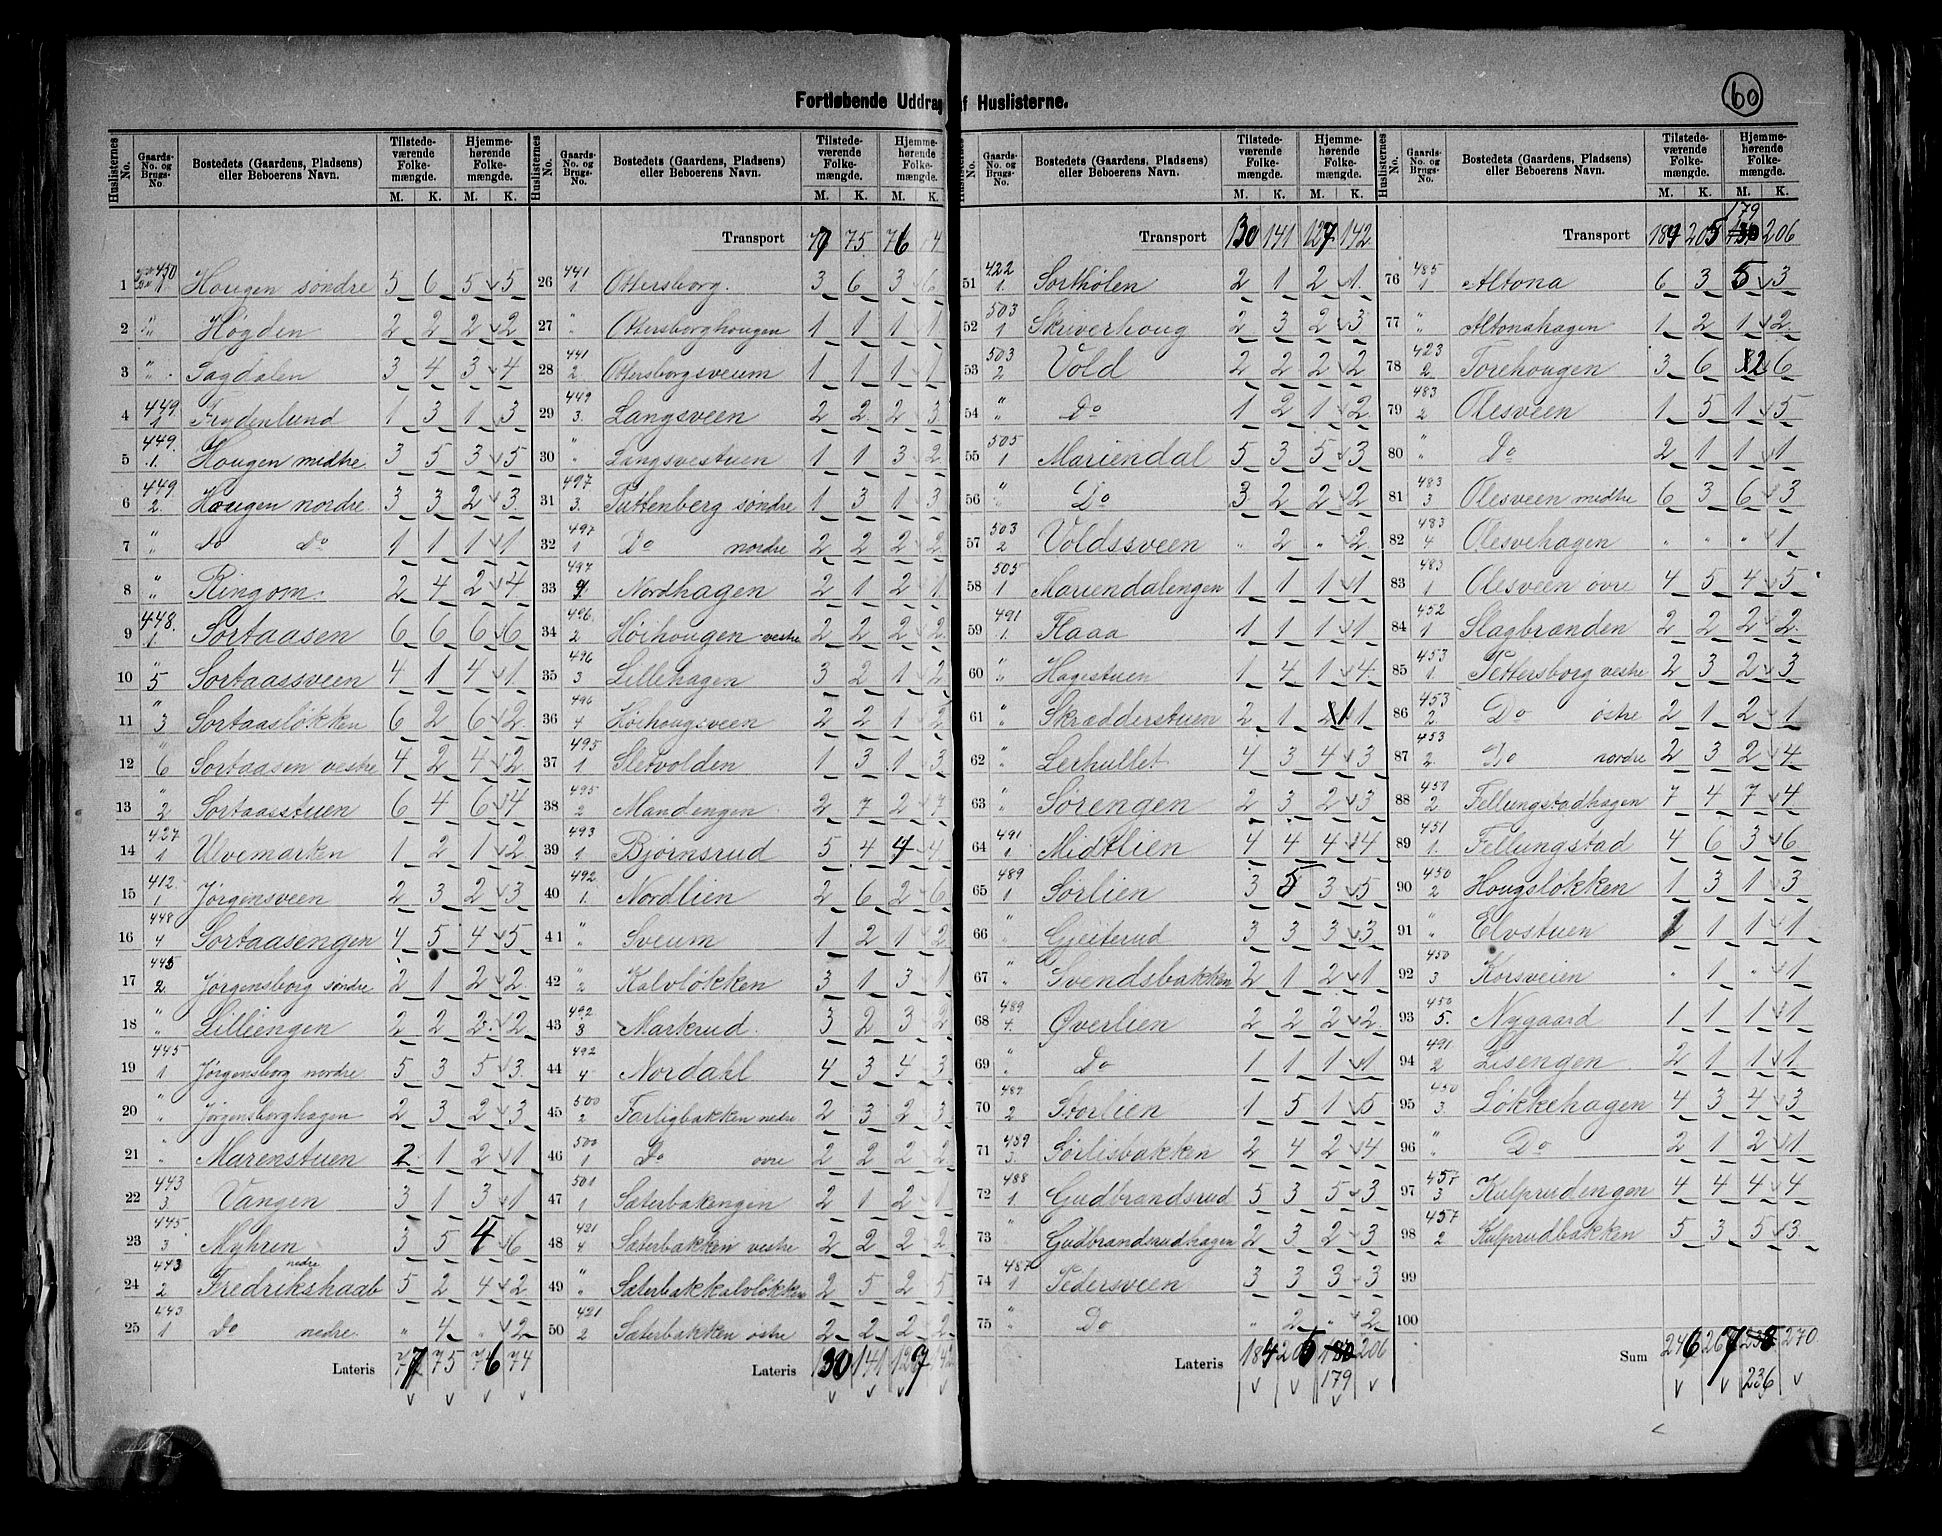 Fortløbende Uddrag af Huslisterne.
60
Huslisternes No. Gaards-No. og Brugs-No. Bostedets (Gaardens, Pladsens) eller Beboerens Navn. Tilstedeværende Folkemængde. M. K. Hjemmehørende Folkemængde. M. K.
1 450 Hougen søndre 5 6 5 5
2 " Høgden 2 2 2 2
3 " Sagdalen 3 4 3 4
4 449. 1 Frydenlund 1 3 1 3
5 449. 1. Hougen midtre 3 5 3 5
6 449 2. Hougen nordre 3 3 2 3
7 " Do Do 1 1 1 1
8 " Ringom 2 4 2 4
9 448. 1. Sortaasen 6 6 6 6
10 " 5 Sortaassveen 4 1 4 1
11 " 3 Sortaasløkken 6 2 6 2
12 " 6 Sortaasen vestre 4 2 4 2
13 " 2 Sortaasstuen 6 4 6 4
14 427 1 Ulvemarken 1 2 1 2
15 412 1 Jørgensveen 2 3 2 3
16 448 4 Sortaasengen 4 5 4 5
17 445 2. Jørgensborg søndre 2 1 2 2
18 " Lilliengen 2 2 2 2
19 445 1 Jørgensborg nordre 5 3 5 3
20 " Jørgensborghagen 2 3 2 3
21 " Marenstuen 2 1 2 1
22 443 3 Vangen 3 1 3 1
23 445 3 Myhren 3 5 4 6
24 443 2 Fredrikshaab nedre 5 2 4 2
25 443 1 Do nedre " 4 " 2
Lateris 77 75 76 74
Huslisternes No. Gaards-No. og Brugs-No. Bostedets (Gaardens, Pladsens) eller Beboerens Navn. Tilstedeværende Folkemængde. M. K. Hjemmehørende Folkemængde. M. K.
Transport 77 75 76 4
26 441 1 Ottersborg. 3 6 3 6
27 " Ottersborghougen 1 1 1 1
28 441 2 Ottersborgsveum 1 1 1 1
29 449 3. Langsveen 2 2 2 3
30 " Langsvestuen 1 1 3 2
31 497 3. Tuttenberg søndre 1 3 1 3
32 497 1 Do nordre 2 2 2 2
33 497 Nordhagen 2 1 2 1
34 496 2 Høihougen vestre 2 2 2 2
35 496 3 Lillehagen 3 2 1 2
36 496 4 Høihougsveen 2 2 1 2
37 495 1 Sletvolden 1 3 1 3
38 495 2 Mandengen 2 7 2 7
39 493 1 Bjørnsrud 5 4 4 4
40 492 1. Nordlien 2 6 2 6
41 " Sveum 1 2 1 2
42 " 2 Kalvløkken 3 1 3 1
43 492 3 Markrud. 3 2 3 2
44 492 4 Nordahl 4 3 4 3
45 500 2 Farligbakken nedre 2 3 2 3
46 500 1 Do øvre 2 2 2 2
47 501 1 Sæterbakengen 2 1 2 1
48 421 4 Sæterbakken vestre 2 2 2 2
49 " Sæterbakkalvløkken 2 5 2 5
50 421 2 Sæterbakken østre 2 2 2 2
Lateris 130 141 127 42
No. Gaards-No. og Brugs-No. Bostedets (Gaardens, Pladsens) eller Beboerens Navn. Tilstedeværende Folkemængde. M. K. Hjemmehørende Folkemængde. M. K.
Transport 130 141 127 142
51 422 1. Sorthølen 2 1 2 1
52 503 1 Skriverhoug 2 3 2 3
53 503 2 Vold 2 2 2 2
54 " Do 1 2 1 2
55 505 1 Mariendal 5 3 5 3
56 " Do 3 2 2 2
57 503 2 Voldssveen " 2 " 2
58 505 1 Mariendalengen 1 1 1 1
59 491 1. Flaaa 1 1 1 1
60 " Hagestuen 1 4 1 4
61 " Skrædderstuen 2 1 1 1
62 " Lerhullet 4 3 4 3
63 " Sørengen 2 3 2 3
64 491 1 Midtlien 4 4 4 4
65 489 1 Sørlien 3 5 3 5
66 " Gjeiterud 3 3 3 3
67 " Svendsbakken 2 1 2 1
68 489 4. Øverlien 2 2 2 2
69 " Do 1 1 1 1
70 489 2 Storlien 1 5 1 5
71 459 3. Sørlisbakken 2 4 2 4
72 488 1. Gudbrandsrud 5 3 5 3
73 " Gudbrandsrudhagen 2 3 2 3
74 487 1 Pedersveen 3 3 3 3
75 " Do " 2 " 2
Lateris 184 205 180 206
179
Huslisternes No. Gaards-No. og Brugs-No. Bostedets (Gaardens, Pladsens) eller Beboerens Navn. Tilstedeværende Folkemængde. M. K. Hjemmehørende Folkemængde. M. K.
179
Transport 184 205 180 206
76 485 1 Altona 6 3 5 3
77 " Altonahagen 1 2 1 2
78 423 2 Torehougen 3 6 2 6
79 483 2 Olesveen 1 5 1 5
80 " Do 2 1 1 1
81 483 3 Olesveen midtre 6 3 6 3
82 483 4 Olesvehagen " " " 1
83 483 1 Olesveen øvre 4 5 4 5
84 452 1 Slagbrænden 2 2 2 2
85 453 1 Pettersborg vestre 2 3 2 3
86 453 2 Do østre 2 1 2 1
87 453 2 Do nordre 2 3 2 4
88 450 2 Fellungstadhagen 7 4 7 4
89 451 1. Fellungstad 4 6 3 6
90 450 2 Hougsløkken 1 3 1 3
91 " Elvstuen 1 1 1 1
92 450 3 Korsveien " 1 " 1
93 450 5. Nygaard 1 1 1 1
94 491 2 Lisengen 2 1 1 1
95 450 3 Løkkehagen 4 3 4 3
96 " Do 2 1 2 1
97 457 3 Kulprudengen 4 4 4 4
98 457 2 Kulprudbakken 5 3 5 3
99
100
Sum 246 267 238 270
236